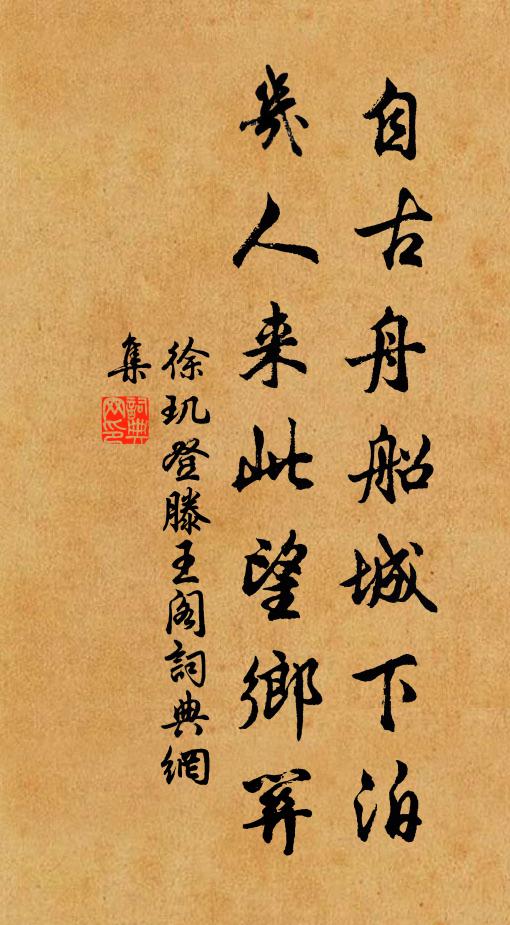 自古舟船城下泊
幾人来此望鄉關
徐玑登滕王阁詞典網
集
詞典网印